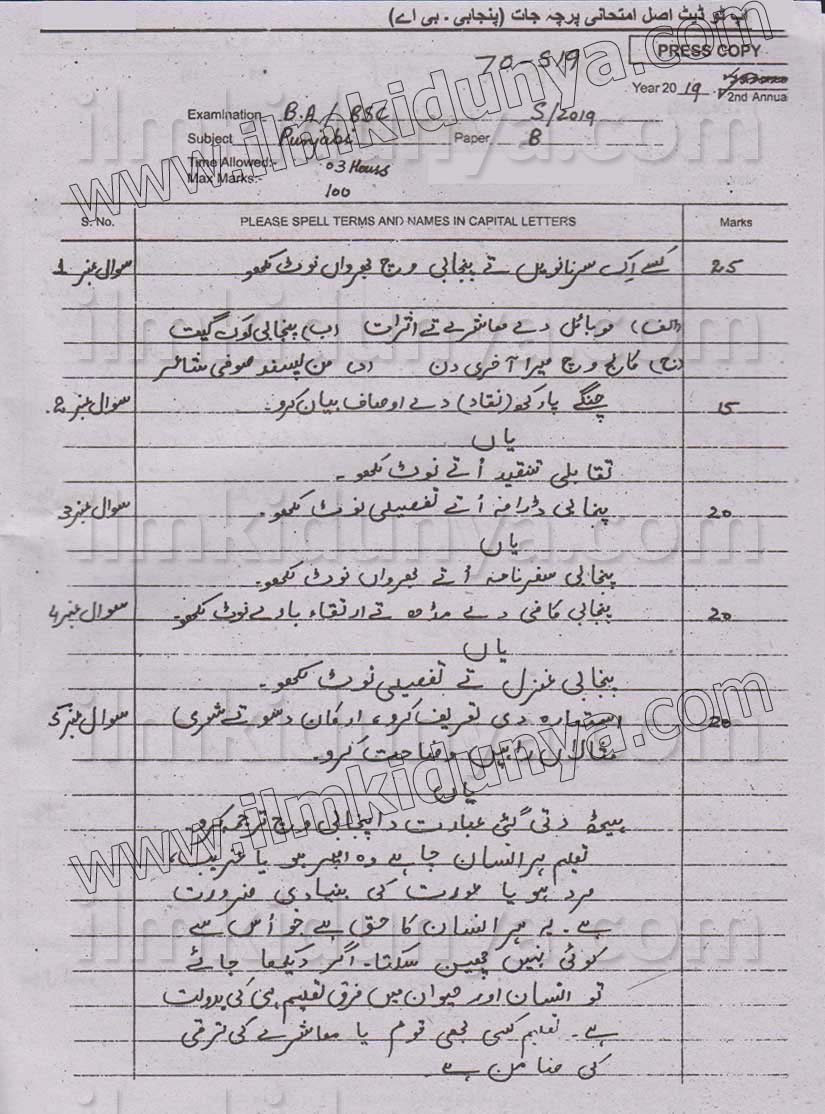 اپ ٹو ڈیٹ اصل امتحانی پرچہ جات (پنجابی - بی اے)
70-S19
PRESS COPY
Year 2019
2nd Annua
Examination B.A / BSC S/2019
Subject Punjabi Paper B
Time Allowed:- 03 Hours
Max Marks:- 100
S. No. PLEASE SPELL TERMS AND NAMES IN CAPITAL LETTERS Marks
سوال نمبر 1 کسے اِک سرنانویں تے پنجابی وچ بھرواں نوٹ لکھو 25
(الف) موبائل دے معاشرے تے اثرات (ب) پنجابی لوک گیت
(ج) کالج وچ میرا آخری دن (د) من پسند صوفی شاعر
سوال نمبر 2. چنگے پارکھ (نقاد) دے اوصاف بیان کرو۔ 15
یاں
تقابلی تنقید اُتے نوٹ لکھو۔
سوال نمبر 3 پنجابی ڈرامہ اُتے تفصیلی نوٹ لکھو۔ 20
یاں
پنجابی سفرنامہ اُتے بھرواں نوٹ لکھو۔
سوال نمبر 4 پنجابی کافی دے مڈھ تے ارتقاء بارے نوٹ لکھو۔ 20
یاں
پنجابی غزل تے تفصیلی نوٹ لکھو۔
سوال نمبر 5 استعارہ دی تعریف کرو، ارکان دسو تے شعری 20
مثالاں راہیں وضاحت کرو۔
یاں
ہیٹھ دتی گئی عبارت دا پنجابی وچ ترجمہ کرو
تعلیم ہر انسان چاہے وہ امیر ہو یا غریب،
مرد ہو یا عورت کی بنیادی ضرورت
ہے۔ یہ ہر انسان کا حق ہے جو اُس سے
کوئی نہیں چھین سکتا۔ اگر دیکھا جائے
تو انسان اور حیوان میں فرق تعلیم ہی کی بدولت
ہے۔ تعلیم کسی بھی قوم یا معاشرے کی ترقی
کی ضامن ہے۔
www.ilmkidunya.com
www.ilmkidunya.com
ilmkidunya.com
ilmkidunya.com
ilmkidunya.com
ilmkidunya.com
ilmkidunya.com